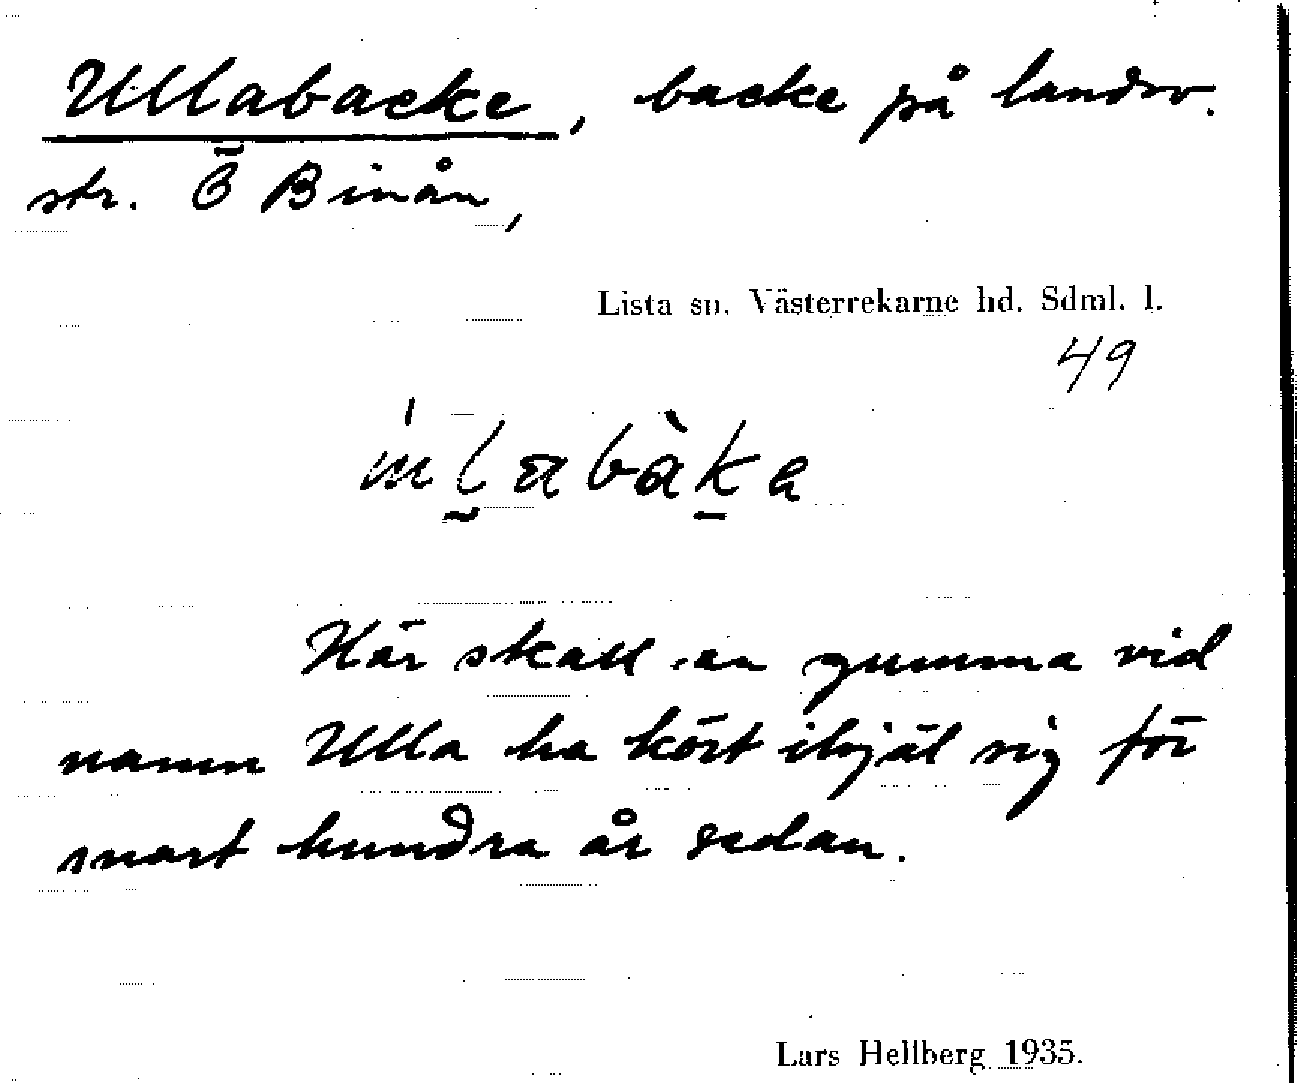 Ullabacke, backe på landsv.
str. Ö Binån,
Lista sn. Västerrekarne hd. Sdml. l.
49
Här skall en gumma vid
namn Ulla ha kört ihjäl sig för
snart hundra år sedan.
Lars Hellberg 1935.